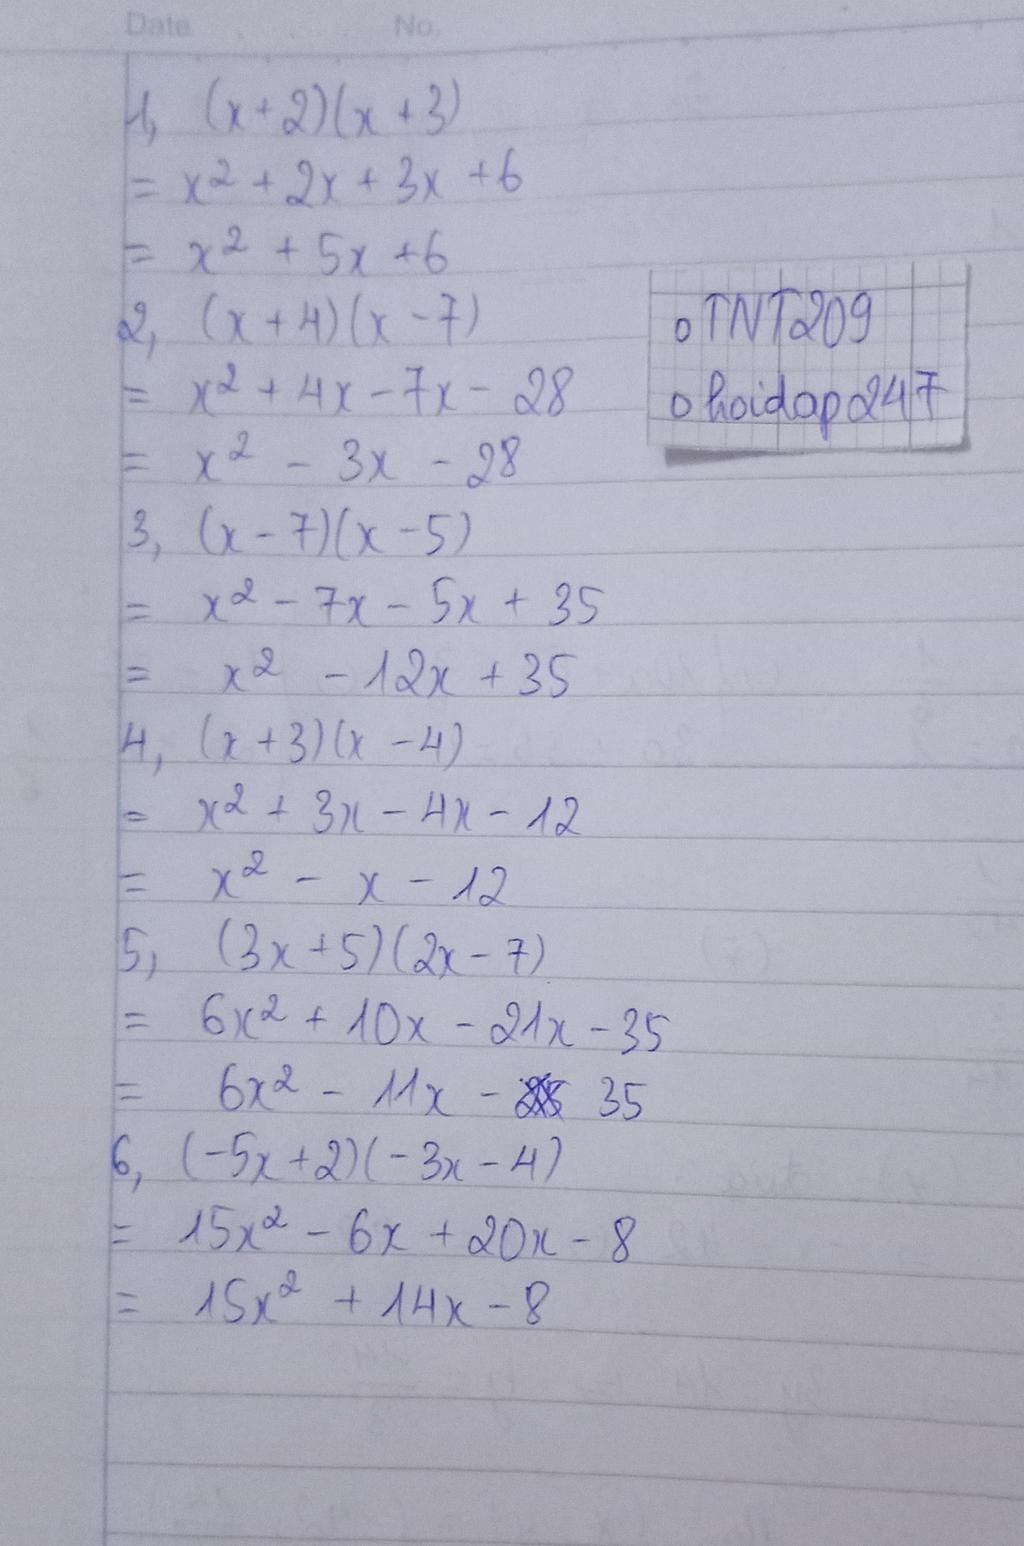 Date No.
1, (x+2)(x+3)
= x² + 2x + 3x + 6
= x² + 5x + 6
2, (x+4)(x-7)
= x² + 4x - 7x - 28
= x² - 3x - 28
o TNT209
o hoidap247
3, (x-7)(x-5)
= x² - 7x - 5x + 35
= x² - 12x + 35
4, (x+3)(x-4)
= x² + 3x - 4x - 12
= x² - x - 12
5, (3x+5)(2x-7)
= 6x² + 10x - 21x - 35
= 6x² - 11x - 35
6, (-5x+2)(-3x-4)
= 15x² - 6x + 20x - 8
= 15x² + 14x - 8